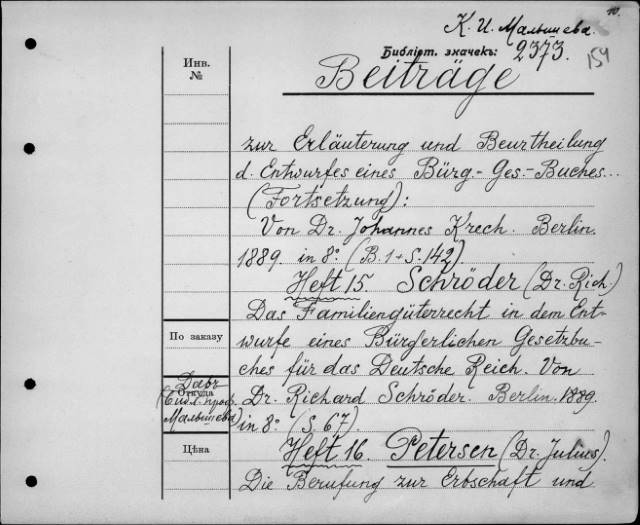 10.
К. И. Малышева.
Библіот. значекъ: 2373.
154
Инв.
№
Beiträge
zur Erläuterung und Beurtheilung
d. Entwurfes eines Bürg.- Ges.- Buches...
(Fortsetzung):
Von Dr. Johannes Krech. Berlin.
1889. in 8° (B. 1 + S. 142).
Heft 15. Schröder (Dr. Rich.)
Das Familiengüterrecht in dem Ent-
По заказу
wurfe eines Bürgerlichen Gesetzbu-
ches für das Deutsche Reich. Von
Даръ
Откуда
(Библ. проф.
Малышева)
Dr. Richard Schröder. Berlin. 1889.
in 8° (S. 67).
Цѣна
Heft 16. Petersen (Dr. Julius).
Die Berufung zur Erbschaft und